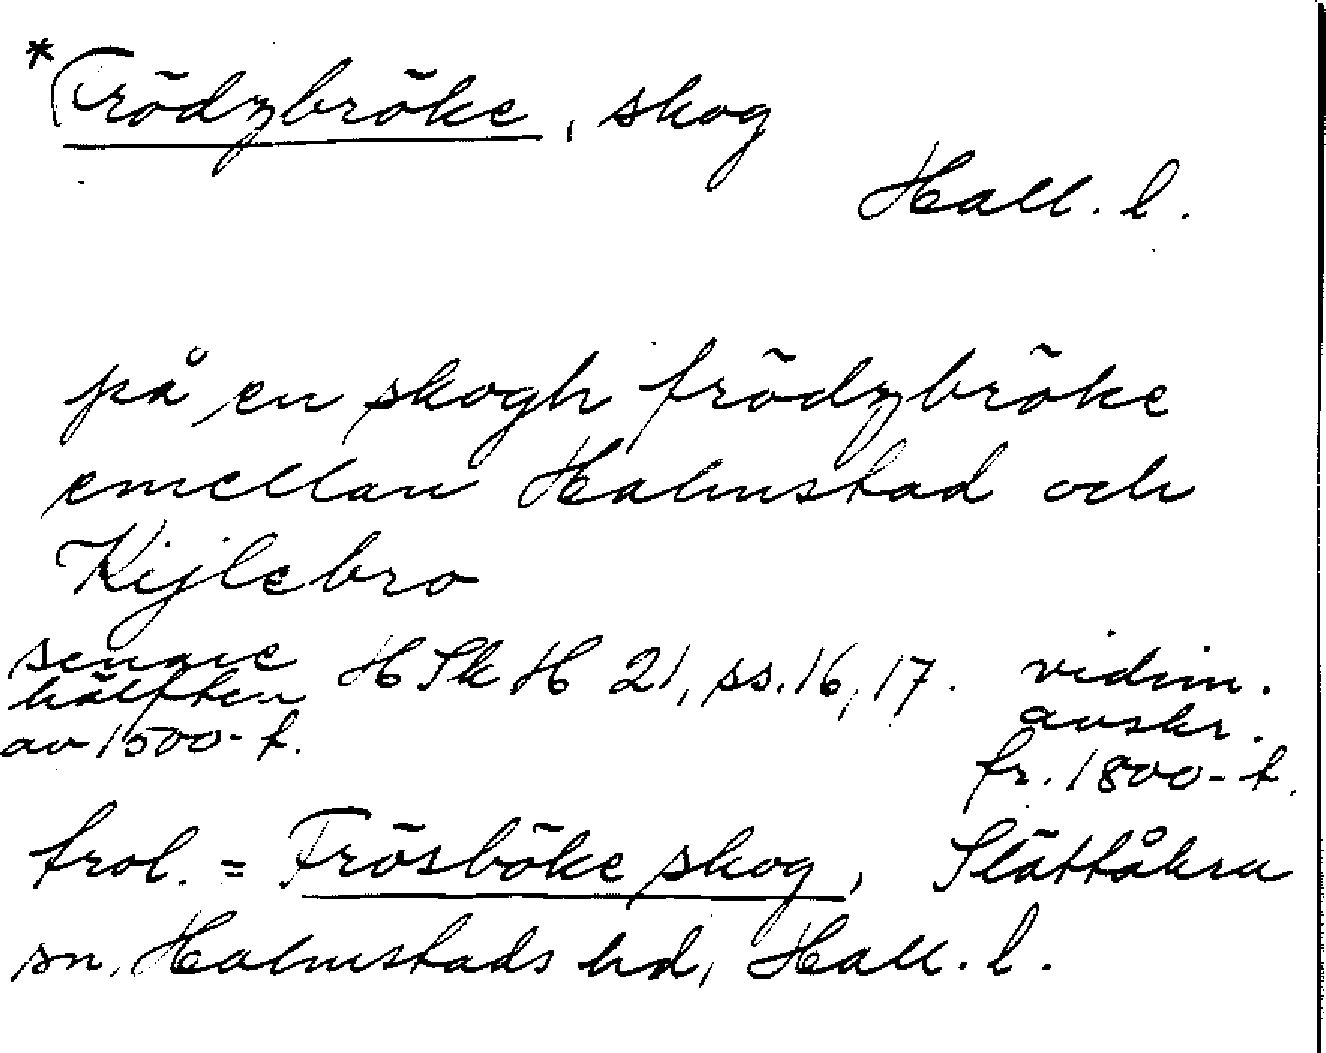 *Frödzbröke, skog
Hall. l.
på en skogh frödzbröke
emellan Halmstad och
Kijlebro
senare hälften av 1500-t. HSkH 21, ss. 16, 17. vidim. avskr. fr. 1800-t.
trol. = Frösböke skog, Slättåkra
sn, Halmstads hd, Hall. l.